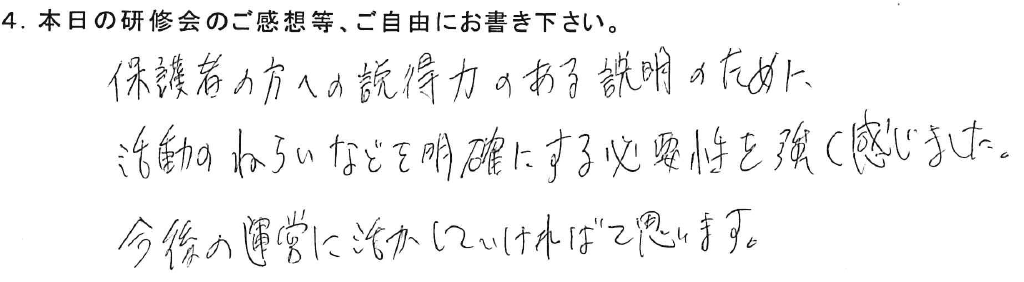 4. 本日の研修会のご感想等、ご自由にお書き下さい。
保護者の方への説得力のある説明のために、
活動のねらいなどを明確にする必要性を強く感じました。
今後の運営に活かしていければと思います。